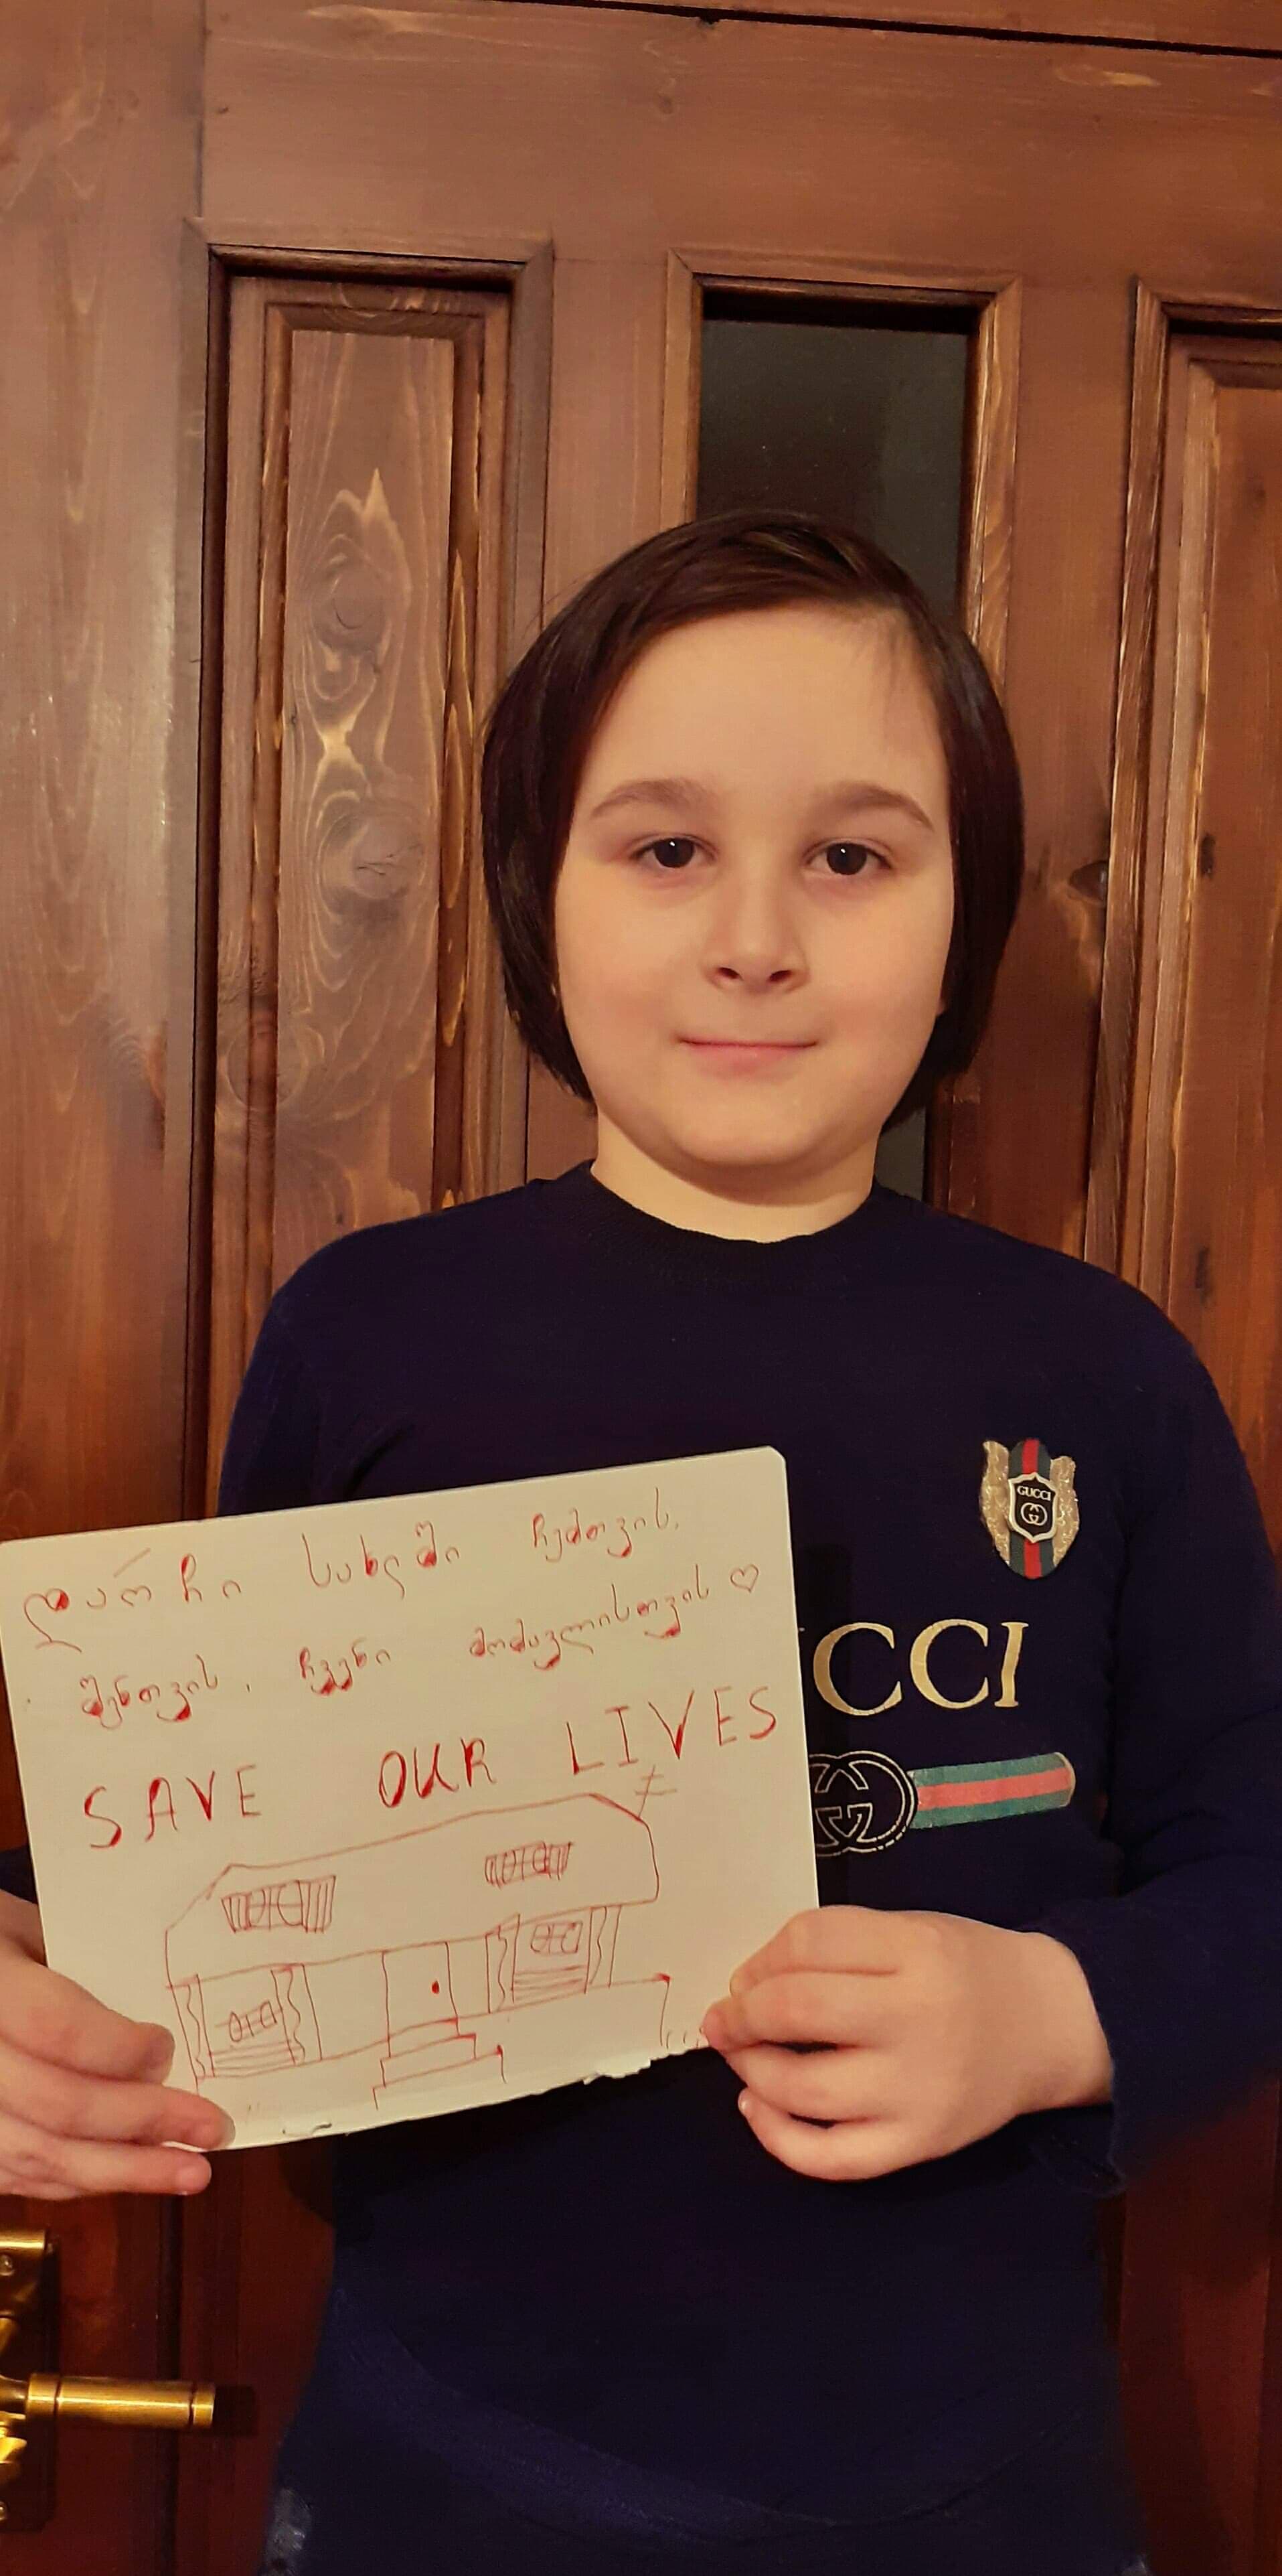 დარჩი სახლში ჩემთვის,
შენთვის, ჩვენი მომავლისთვის ♡
SAVE OUR LIVES
GUCCI
CCI